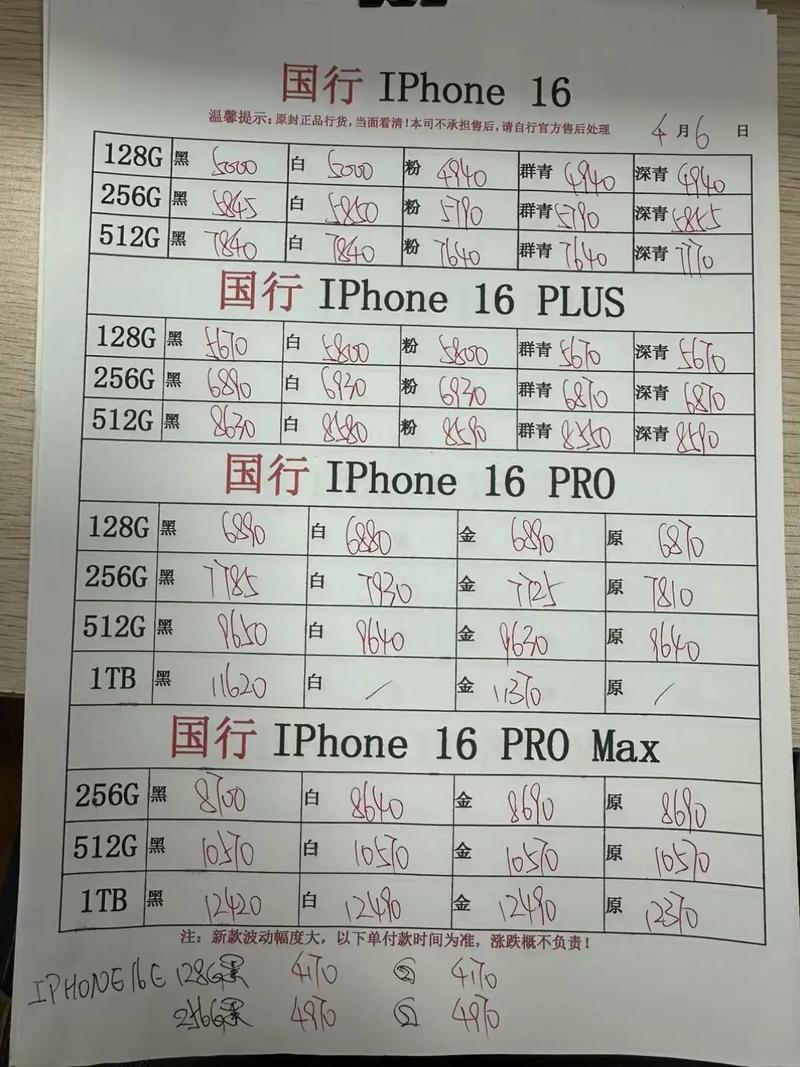 国行 IPhone 16
温馨提示：原封正品行货，当面看清！本司不承担售后，请自行官方售后处理 4月6日
128G 黑 5000 白 5000 粉 4940 群青 4940 深青 4940
256G 黑 5845 白 5850 粉 5790 群青 5790 深青 5855
512G 黑 7840 白 7840 粉 7640 群青 7640 深青 7770
国行 IPhone 16 PLUS
128G 黑 5670 白 5800 粉 5800 群青 5670 深青 5670
256G 黑 6890 白 6930 粉 6930 群青 6870 深青 6870
512G 黑 8630 白 8580 粉 8590 群青 8350 深青 8590
国行 IPhone 16 PRO
128G 黑 6890 白 6880 金 6890 原 6870
256G 黑 7785 白 7930 金 7725 原 7810
512G 黑 9650 白 9640 金 9630 原 9640
1TB 黑 11620 白 / 金 11370 原 /
国行 IPhone 16 PRO Max
256G 黑 8700 白 8640 金 8690 原 8690
512G 黑 10570 白 10570 金 10570 原 10570
1TB 黑 12420 白 12490 金 12490 原 12370
注：新款波动幅度大，以下单付款时间为准，涨跌概不负责！
IPHONE16E 128G黑 4170 白 4170
256G黑 4970 白 4970